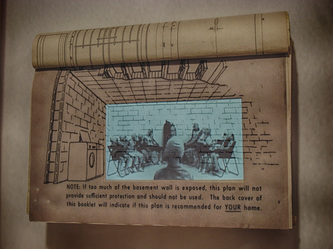 NOTE: If too much of the basement wall is exposed, this plan will not
provide sufficient protection and should not be used. The back cover
of this booklet will indicate if this plan is recommended for YOUR home.